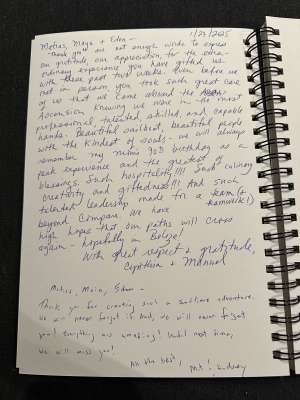 1/23/2025
Matias, Maya + Eden -
Thank you are not enough words to express
our gratitude, our appreciation, for the extra-
ordinary experience you have gifted us
with these past two weeks. Even before we
met in person, you took such great care
of us that we came aboard the
Ascension knowing we were in the most
professional, talented, skilled, and capable
hands. Beautiful sailboat, beautiful people
with the kindest of souls - we will always
remember my mom's 93rd birthday as a
peak experience and the greatest of
blessings. Such hospitality!!!! Such culinary
creativity and giftedness!!! And such
talented leadership made for a team (+
teamwork!)
beyond compare. We have
high hopes that our paths will cross
again - hopefully in Belize!
With great respect + gratitude,
Cynthia + Manuel
Thank you for creating such a sailing adventure.
We will never forget it. And, we will never forget
you! Everything was amazing! Until next time,
We will miss you!
All the best,
Lindsay